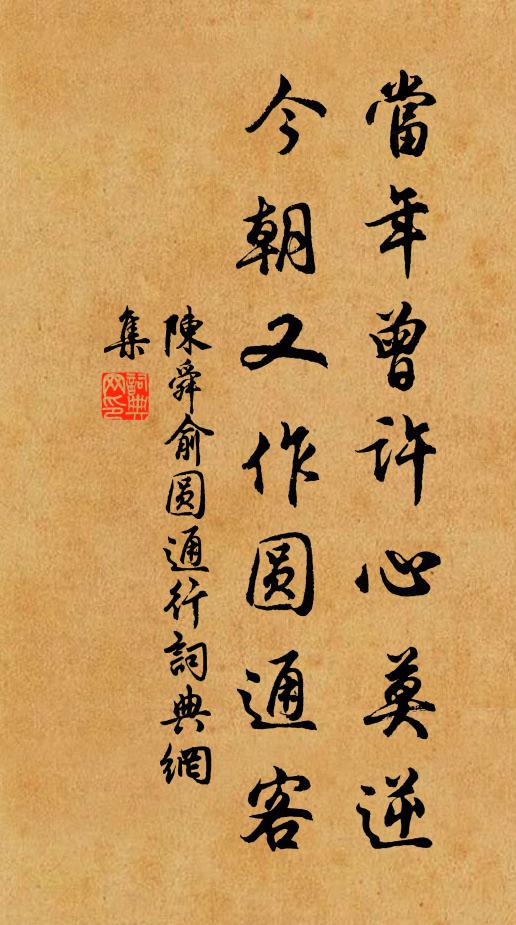 當年曾許心莫逆
今朝又作圆通客
陳舜俞圆通行詞典網
集
詞典
网印